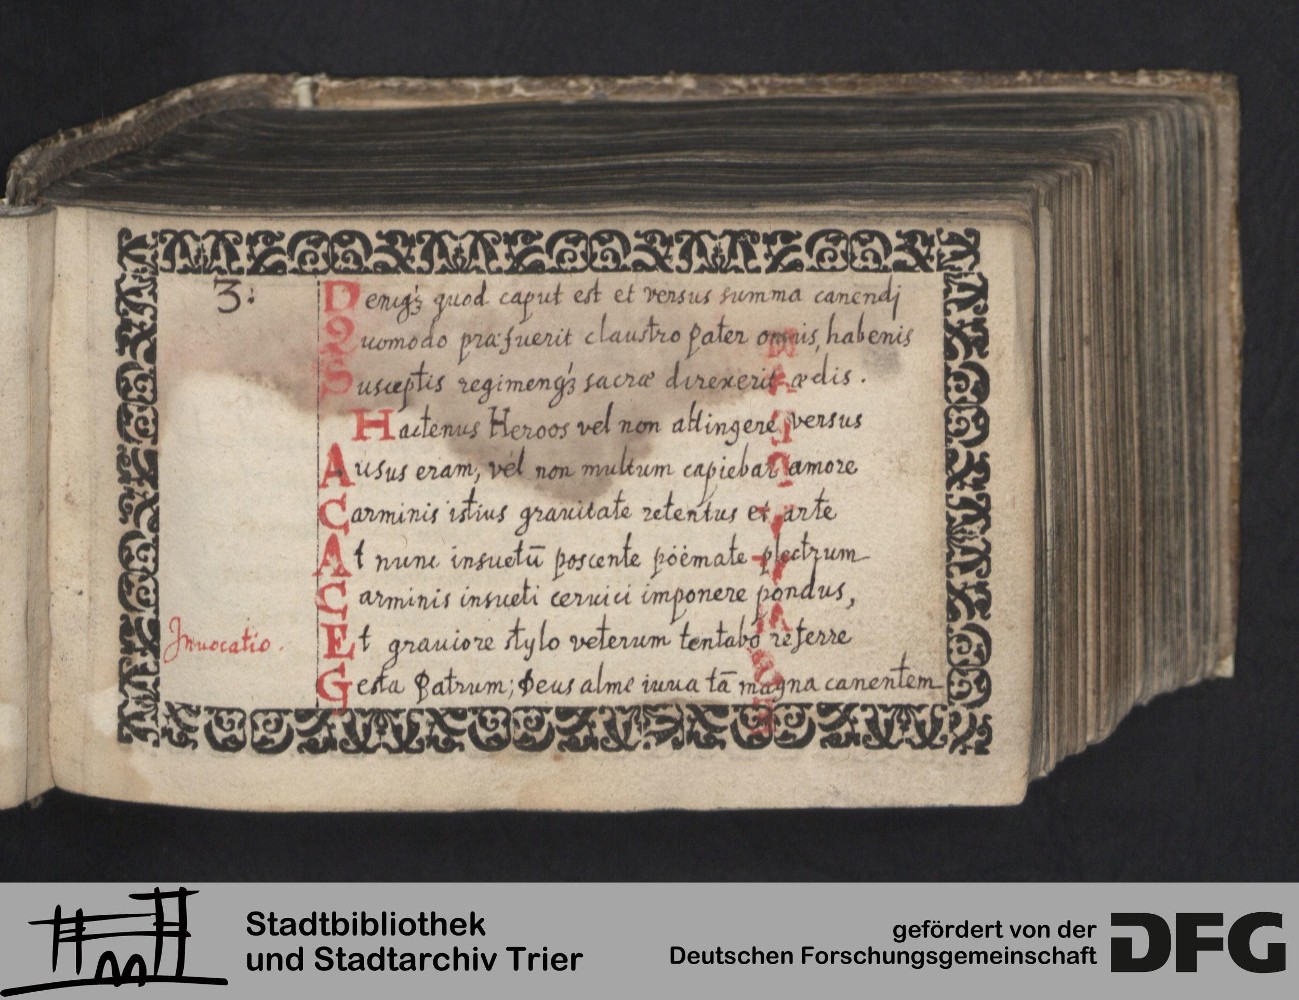 3:
Deniqꝫ quod caput est et versus summa canendj
Quomodo præfuerit claustro pater omnis, habenis
Susceptis regimenqꝫ sacræ direxerit ædis.
Hactenus Heroos vel non attingere versus
Ausus eram, vel non multum capiebar amore
Carminis istius grauitate retentus et arte
At nunc insuetū poscente pöëmate plectrum
Carminis insueti ceruici imponere pondus,
Invocatio.
Et grauiore stylo veterum tentabo referre
Gesta Patrum; Deus alme iuua tā magna canentem
Stadtbibliothek
und Stadtarchiv Trier
gefördert von der
Deutschen Forschungsgemeinschaft
DFG